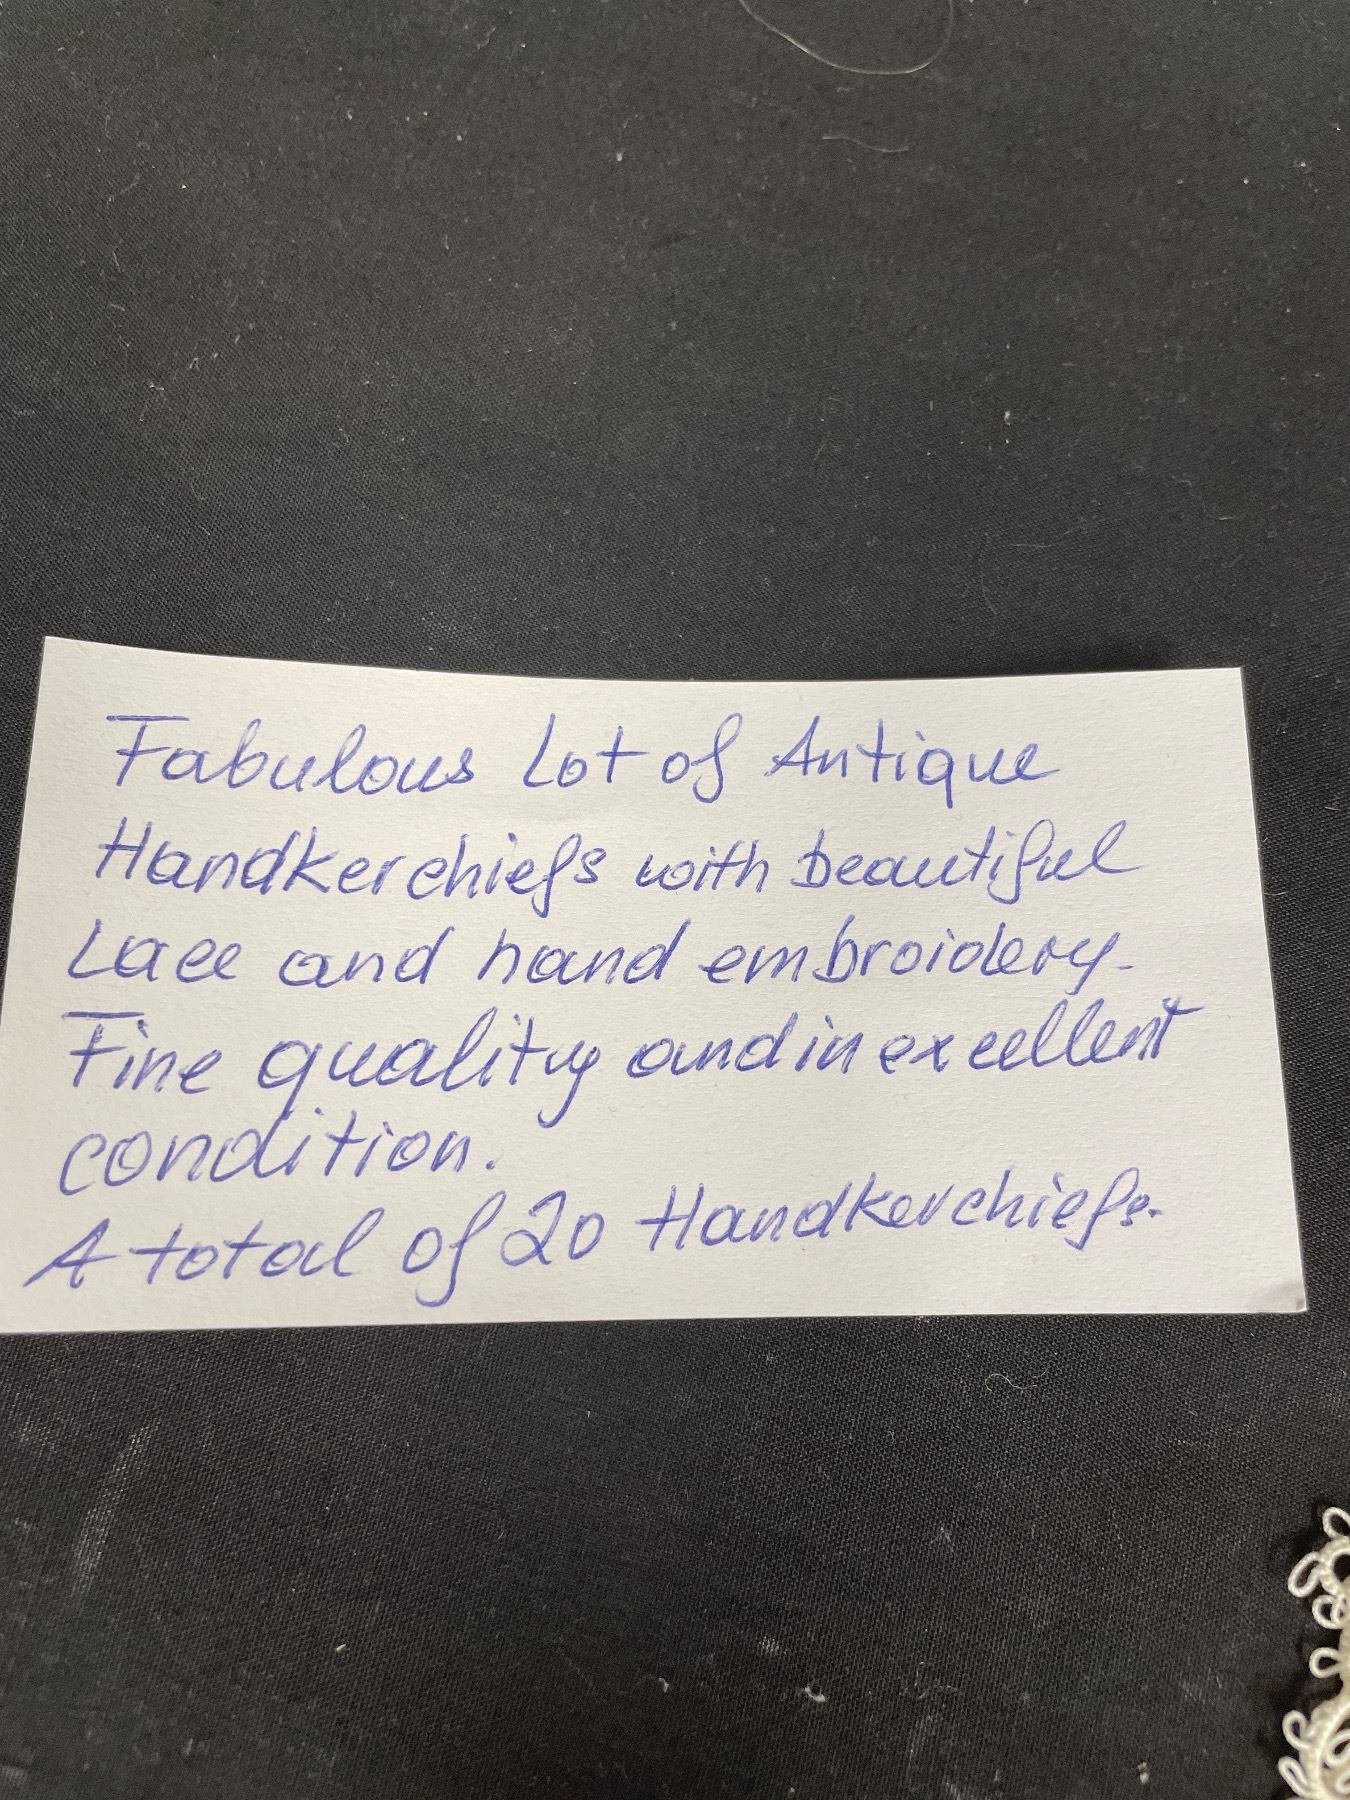 Fabulous Lot of Antique
Handkerchiefs with beautiful
Lace and hand embroidery.
Fine quality and in excellent
condition.
A total of 20 Handkerchiefs.